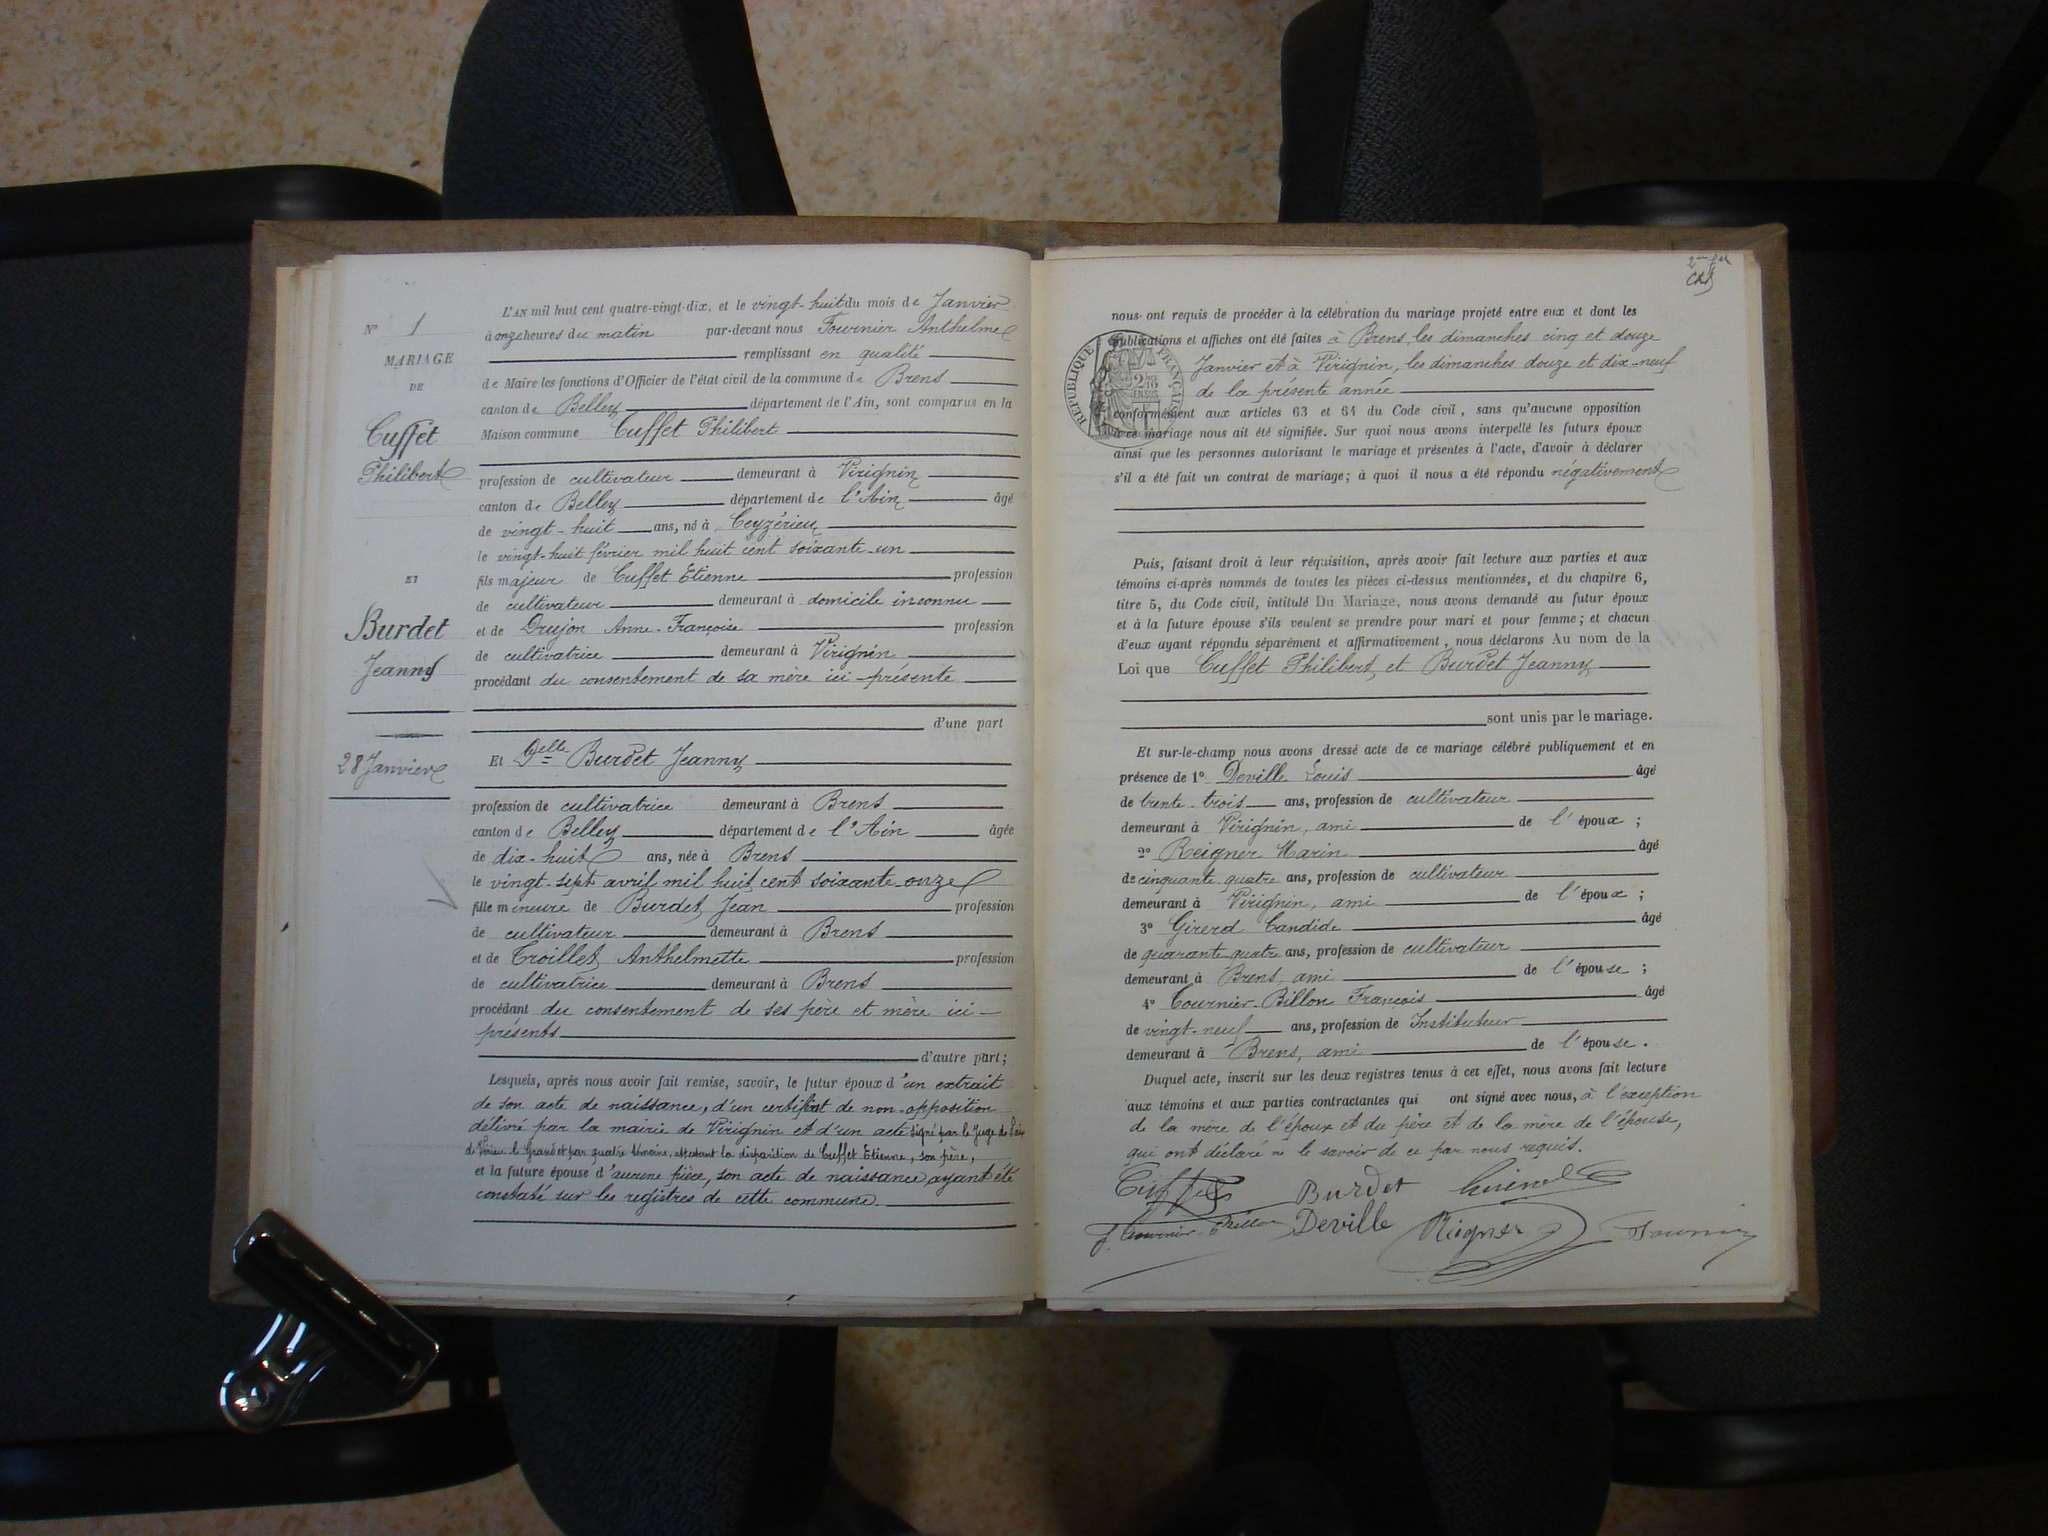 N° 1
MARIAGE
DE
Cuffet
Philibert
ET
Burdet
Jeanny
28 Janvier
L'AN mil huit cent quatre-vingt-dix, et le vingt-huit du mois de Janvier
à onze heures du matin par-devant nous Fournier Anthelme
remplissant en qualité
de Maire les fonctions d'Officier de l'état civil de la commune de Brens
canton de Belley département de l'Ain, sont comparus en la
Maison commune Cuffet Philibert
profession de cultivateur demeurant à Virignin
canton de Belley département de l'Ain âgé
de vingt-huit ans, né à Ceyzérieu
le vingt-huit février mil huit cent soixante-un
fils majeur de Cuffet Etienne profession
de cultivateur demeurant à domicile inconnu
et de Drujon Anne-Françoise profession
de cultivatrice demeurant à Virignin
procédant du consentement de sa mère ici-présente
d'une part
Et Delle Burdet Jeanny
profession de cultivatrice demeurant à Brens
canton de Belley département de l'Ain âgée
de dix-huit ans, née à Brens
le vingt-sept avril mil huit cent soixante-onze
fille mineure de Burdet Jean profession
de cultivateur demeurant à Brens
et de Troillet Anthelmette profession
de cultivatrice demeurant à Brens
procédant du consentement de ses père et mère ici-
présents
d'autre part;
Lesquels, après nous avoir fait remise, savoir, le futur époux d'un extrait
de son acte de naissance, d'un certificat de non-opposition
délivré par la mairie de Virignin et d'un acte signé par le Juge de Paix
de Virieu le Grand et par quatre témoins, attestant la disparition de Cuffet Etienne, son père,
et la future épouse d'aucune pièce, son acte de naissance ayant été
constaté sur les registres de cette commune.
2me
nous ont requis de procéder à la célébration du mariage projeté entre eux et dont les
publications et affiches ont été faites à Brens, les dimanches cinq et douze
Janvier et à Virignin, les dimanches douze et dix-neuf
de la présente année
RÉPUBLIQUE FRANÇAISE
conformément aux articles 63 et 64 du Code civil, sans qu'aucune opposition
à ce mariage nous ait été signifiée. Sur quoi nous avons interpellé les futurs époux
ainsi que les personnes autorisant le mariage et présentes à l'acte, d'avoir à déclarer
s'il a été fait un contrat de mariage; à quoi il nous a été répondu négativement
Puis, faisant droit à leur réquisition, après avoir fait lecture aux parties et aux
témoins ci-après nommés de toutes les pièces ci-dessus mentionnées, et du chapitre 6,
titre 5, du Code civil, intitulé Du Mariage, nous avons demandé au futur époux
et à la future épouse s'ils veulent se prendre pour mari et pour femme; et chacun
d'eux ayant répondu séparément et affirmativement, nous déclarons Au nom de la
Loi que Cuffet Philibert et Burdet Jeanny
sont unis par le mariage.
Et sur-le-champ nous avons dressé acte de ce mariage célébré publiquement et en
présence de 1° Deville Louis âgé
de trente-trois ans, profession de cultivateur
demeurant à Virignin, ami de l'époux;
2° Reigner Marin âgé
de cinquante-quatre ans, profession de cultivateur
demeurant à Virignin, ami de l'époux;
3° Girerd Candide âgé
de quarante-quatre ans, profession de cultivateur
demeurant à Brens, ami de l'épouse;
4° Tournier-Billon François âgé
de vingt-neuf ans, profession de Instituteur
demeurant à Brens, ami de l'épouse.
Duquel acte, inscrit sur les deux registres tenus à cet effet, nous avons fait lecture
aux témoins et aux parties contractantes qui ont signé avec nous, à l'exception
de la mère de l'époux et du père et de la mère de l'épouse,
qui ont déclaré ne le savoir de ce par nous requis.
Cuffet Burdet
F. Tournier-Billon Deville Reigner Fournier